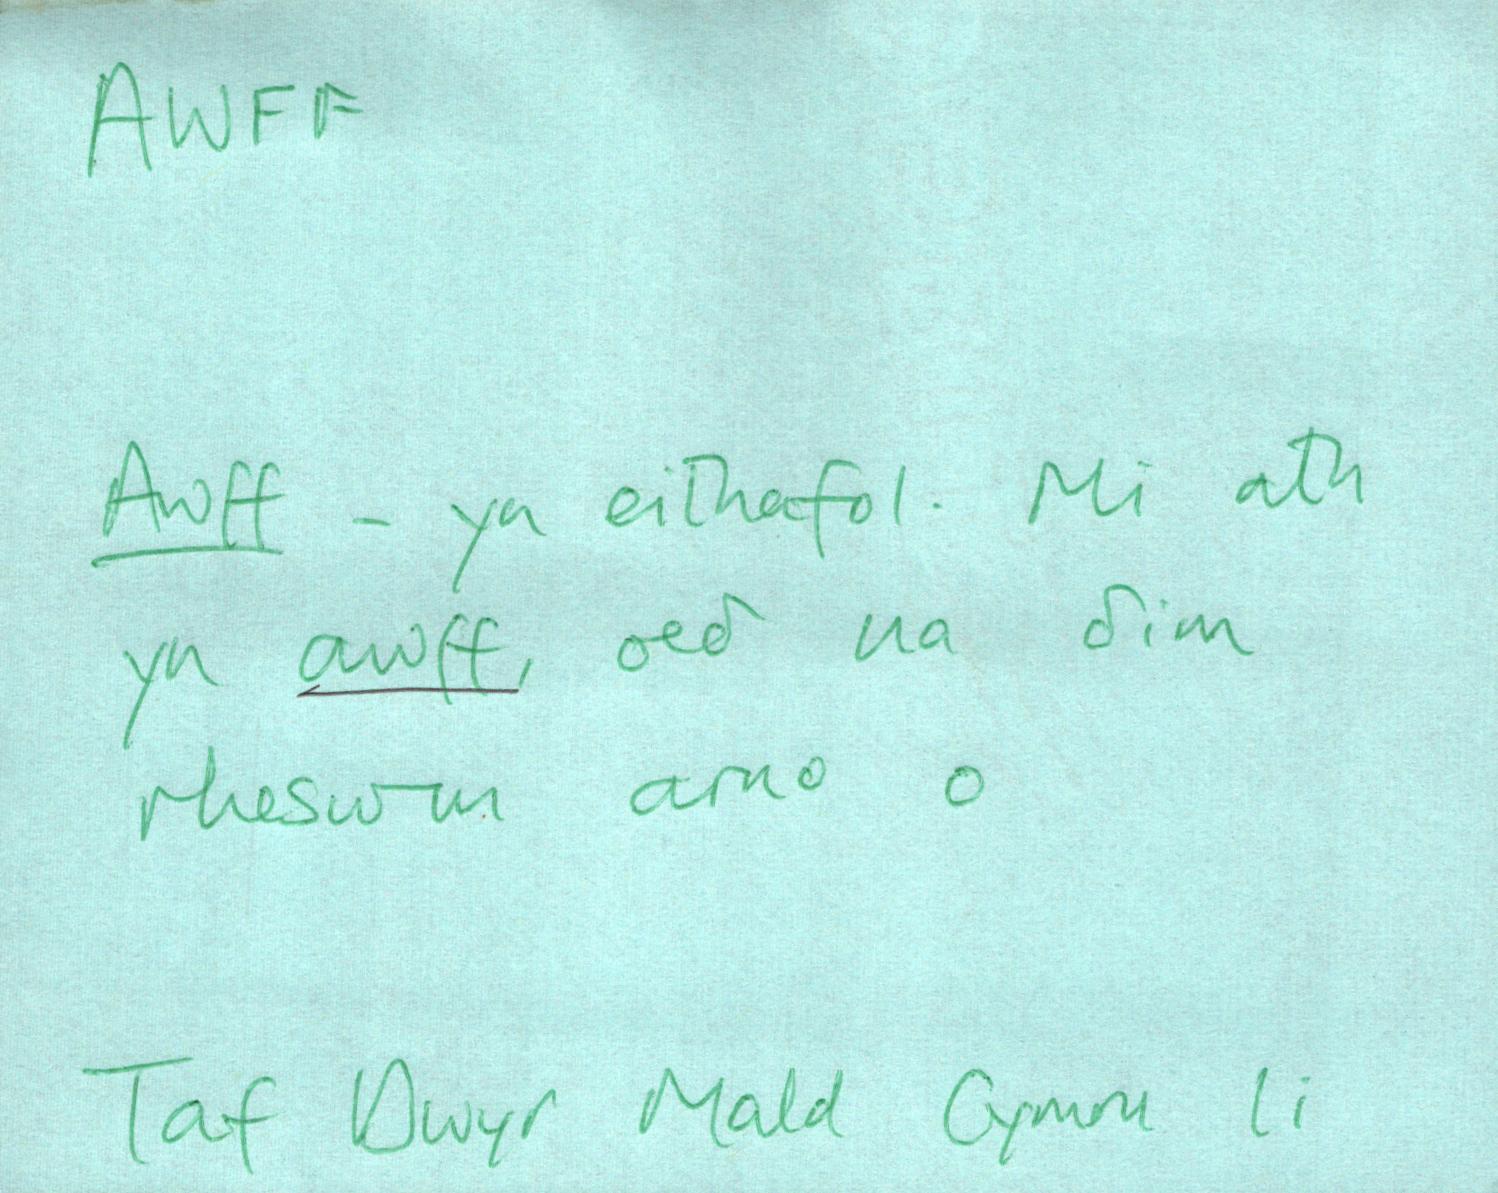 AWFF
Awff - yn eithafol. Mi ath
yn awff, oeð na ðim
rheswm arno o
Taf Dwyr Mald Cymru li